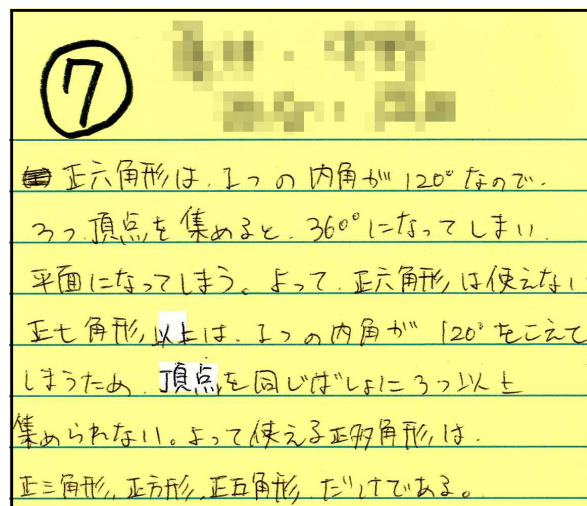 ⑦
正六角形は、1つの内角が120°なので、
3つ頂点を集めると、360°になってしまい
平面になってしまう。よって、正六角形は使えない
正七角形以上は、1つの内角が120°をこえて
しまうため、頂点を同じばしょに3つ以上
集められない。よって使える正多角形は、
正三角形、正方形、正五角形、だけである。